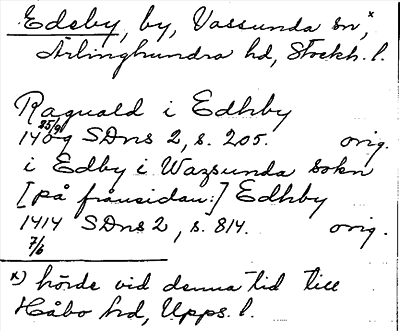 Edeby, by, Vassunda sn,x
Ärlinghundra hd, Stockh. l.
Raguald i Edhby
1409 25/9 SDns 2, s. 205. orig.
i Edby i Wazsunda sokn
[på frånsidan:] Edhby
1414 SDns 2, s. 814. orig.
7/6
x) hörde vid denna tid till
Håbo hd, Upps. l.